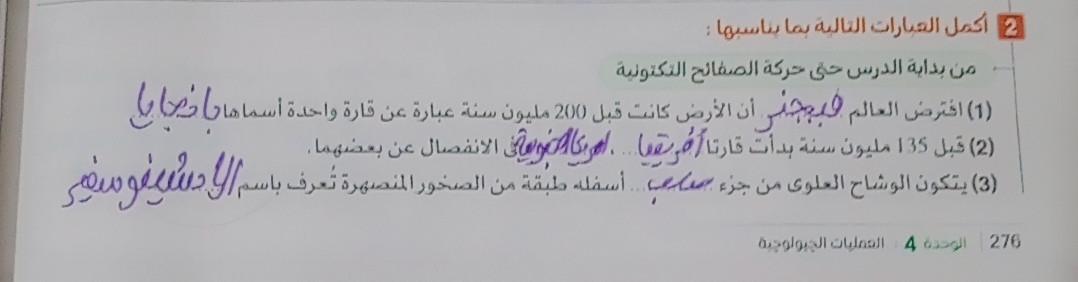 2 أكمل العبارات التالية بما يناسبها :
من بداية الدرس حتى حركة الصفائح التكتونية
(1) افترض العالم فيجنر أن الأرض كانت قبل 200 مليون سنة عبارة عن قارة واحدة أسماها بانجايا
(2) قبل 135 مليون سنة بدأت قارتا أفريقيا ... ، امريكا الجنوبية في الانفصال عن بعضهما.
(3) يتكون الوشاح العلوي من جزء صلب ... أسفله طبقة من الصخور المنصهرة تُعرف باسم الاسثينوسفير
276 الوحدة 4 العمليات الجيولوجية